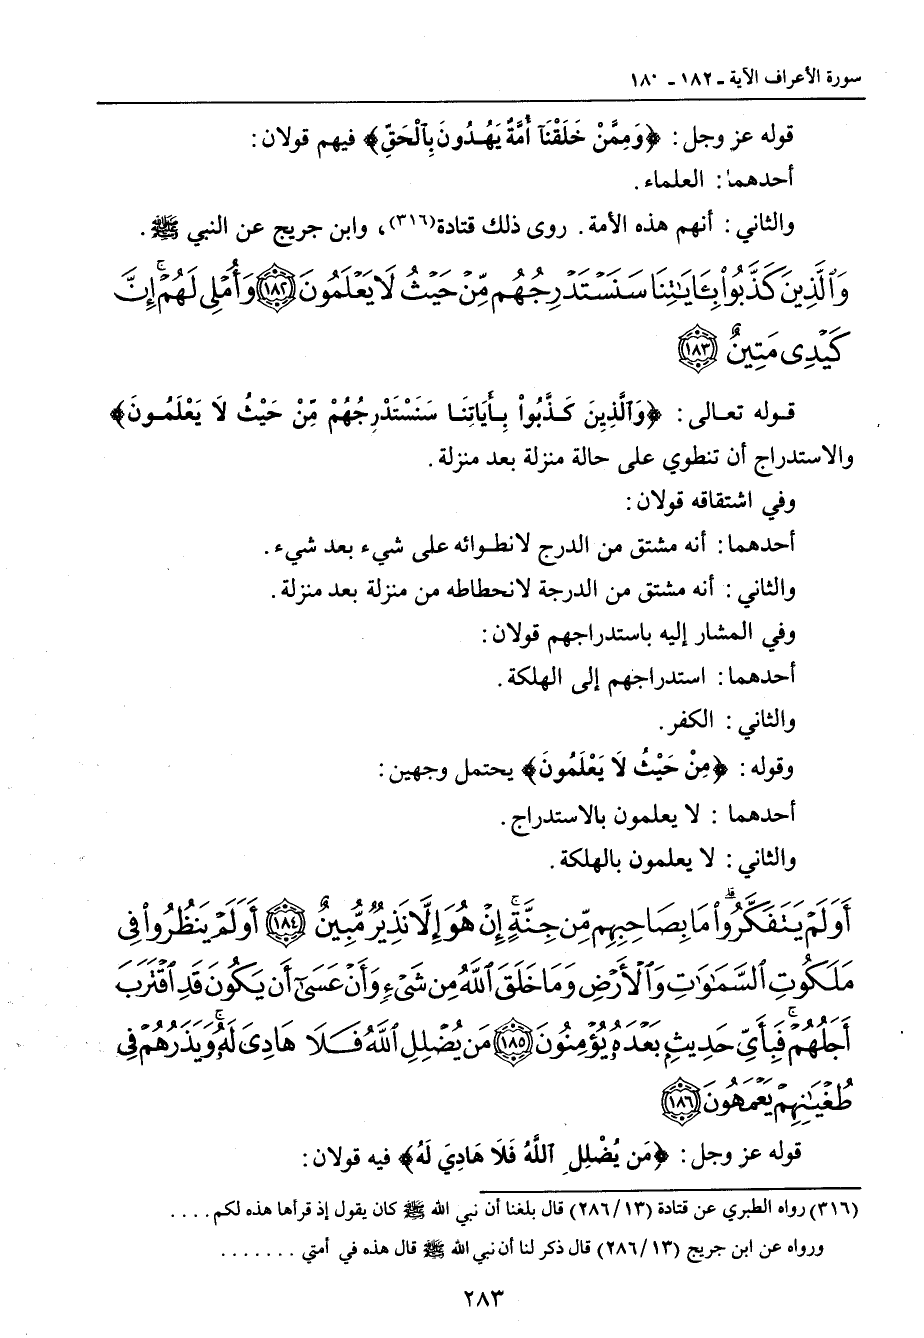 سورة الأعراف الآية ـ ١٨٢ ـ ١٨٠
قوله عز وجل: ﴿وَمِمَّنْ خَلَقْنَآ أُمَّةٌ يَهْدُونَ بِٱلْحَقِّ﴾ فيهم قولان:
أحدهما: العلماء.
والثاني: أنهم هذه الأمة. روى ذلك قتادة(٣١٦)، وابن جريج عن النبي ﷺ.
وَٱلَّذِينَ كَذَّبُوا۟ بِـَٔايَـٰتِنَا سَنَسْتَدْرِجُهُم مِّنْ حَيْثُ لَا يَعْلَمُونَ ﴿١٨٢﴾ وَأُمْلِى لَهُمْ ۚ إِنَّ
كَيْدِى مَتِينٌ ﴿١٨٣﴾
قوله تعالى: ﴿وَٱلَّذِينَ كَذَّبُوا۟ بِأَيَاتِنَا سَنَسْتَدْرِجُهُمْ مِّنْ حَيْثُ لَا يَعْلَمُونَ﴾
والاستدراج أن تنطوي على حالة منزلة بعد منزلة.
وفي اشتقاقه قولان:
أحدهما: أنه مشتق من الدرج لانطوائه على شيء بعد شيء.
والثاني: أنه مشتق من الدرجة لانحطاطه من منزلة بعد منزلة.
وفي المشار إليه باستدراجهم قولان:
أحدهما: استدراجهم إلى الهلكة.
والثاني: الكفر.
وقوله: ﴿مِنْ حَيْثُ لَا يَعْلَمُونَ﴾ يحتمل وجهين:
أحدهما : لا يعلمون بالاستدراج.
والثاني: لا يعلمون بالهلكة.
أَوَلَمْ يَتَفَكَّرُوا۟ ۗ مَا بِصَاحِبِهِم مِّن جِنَّةٍ ۚ إِنْ هُوَ إِلَّا نَذِيرٌ مُّبِينٌ ﴿١٨٤﴾ أَوَلَمْ يَنظُرُوا۟ فِى
مَلَكُوتِ ٱلسَّمَـٰوَٰتِ وَٱلْأَرْضِ وَمَا خَلَقَ ٱللَّهُ مِن شَىْءٍ وَأَنْ عَسَىٰٓ أَن يَكُونَ قَدِ ٱقْتَرَبَ
أَجَلُهُمْ ۖ فَبِأَىِّ حَدِيثٍۭ بَعْدَهُۥ يُؤْمِنُونَ ﴿١٨٥﴾ مَن يُضْلِلِ ٱللَّهُ فَلَا هَادِىَ لَهُۥ ۚ وَيَذَرُهُمْ فِى
طُغْيَـٰنِهِمْ يَعْمَهُونَ ﴿١٨٦﴾
قوله عز وجل: ﴿مَن يُضْلِلِ ٱللَّهُ فَلَا هَادِيَ لَهُ﴾ فيه قولان:
(٣١٦) رواه الطبري عن قتادة (٢٨٦/١٣) قال بلغنا أن نبي الله ﷺ كان يقول إذ قرأها هذه لكم ....
ورواه عن ابن جريج (٢٨٦/١٣) قال ذكر لنا أن نبي الله ﷺ قال هذه في أمتي .......
٢٨٣